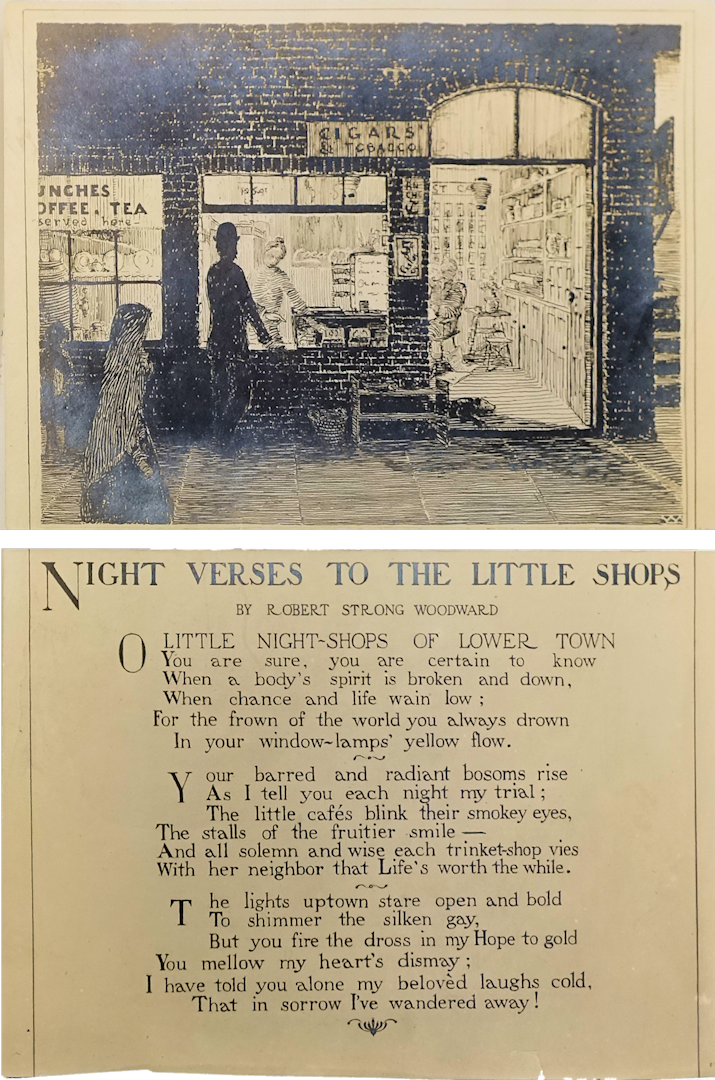 CIGARS
& TOBACCO
UNCHES
OFFEE, TEA
served here-
NIGHT VERSES TO THE LITTLE SHOPS
BY ROBERT STRONG WOODWARD
O LITTLE NIGHT-SHOPS OF LOWER TOWN
You are sure, you are certain to know
When a body's spirit is broken and down,
When chance and life wain low;
For the frown of the world you always drown
In your window-lamps' yellow flow.
Your barred and radiant bosoms rise
As I tell you each night my trial;
The little cafés blink their smokey eyes,
The stalls of the fruitier smile —
And all solemn and wise each trinket-shop vies
With her neighbor that Life's worth the while.
The lights uptown stare open and bold
To shimmer the silken gay,
But you fire the dross in my Hope to gold
You mellow my heart's dismay;
I have told you alone my belovèd laughs cold,
That in sorrow I've wandered away!